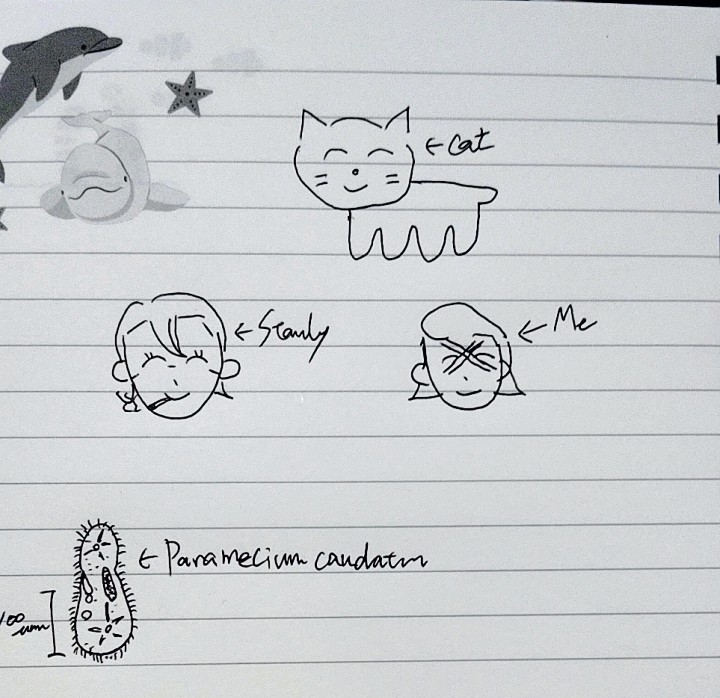 ← Cat
← Stanly
← Me
← Paramecium caudatm
100 μm